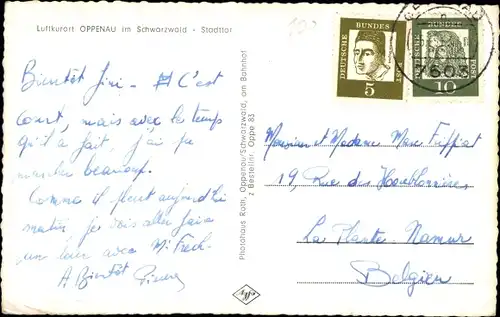 Luftkurort OPPENAU im Schwarzwald - Stadttor
Bientôt fini - C'est
court, mais avec le temps
qu'il a fait, j'ai pu
marcher beaucoup.
Comme il pleut aujourd'hui
matin, je vais aller faire
un tour avec
A Bientôt
Photohaus Roth, Oppenau/Schwarzwald, am Bahnhof
z Bestellnr. Oppe 83
DEUTSCHE BUNDES POST
5
DEUTSCHE BUNDES POST
10
Monsieur et Madame Marc
19, Rue des Houblonnières
La Plante - Namur
Belgien